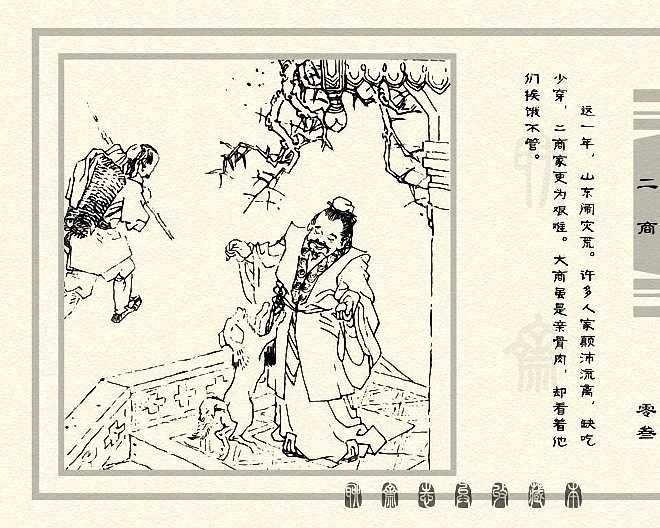 这一年，山东闹灾荒。许多人家颠沛流离，缺吃
少穿，二商家更为艰难。大商虽是亲骨肉，却看着他
们挨饿不管。
二商
零叁
聊斋志异收藏本